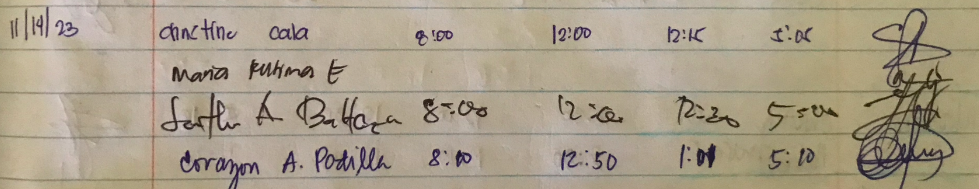 11/14/23 cala 8:00 12:00 12:15 5:05
Maria Fatima E
A 8:00 12:00 12:30 5:00
Corazon A. Padilla 8:10 12:50 1:01 5:10